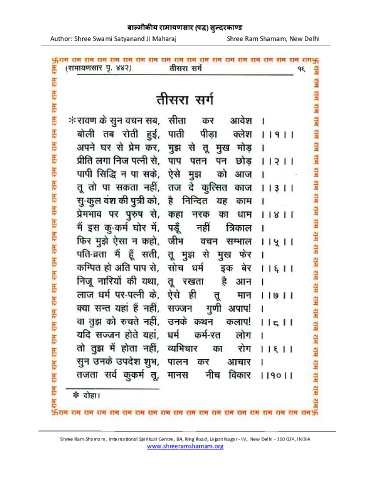 बाल्मीकीय रामायणसार (पद्य) सुन्दरकाण्ड
Author: Shree Swami Satyanand Ji Maharaj Shree Ram Sharnam, New Delhi
राम राम राम राम राम राम राम राम राम राम राम राम राम राम राम राम राम राम राम राम
(रामायणसार पृ. ४४२) तीसरा सर्ग १६
तीसरा सर्ग
*रावण के सुन वचन सब, सीता कर आवेश ।
बोली तब रोती हुई, पाती पीड़ा क्लेश ।।१।।
अपने घर से प्रेम कर, मुझ से तू मुख मोड़ ।
प्रीति लगा निज पत्नी से, पाप पतन पन छोड़ ।।२।।
पापी सिद्धि न पा सके, ऐसे मुझ को आज ।
तू तो पा सकता नहीं, तज दे कुत्सित काज ।।३।।
सु-कुल वंश की पुत्री को, है निन्दित यह काम ।
प्रेमभाव पर पुरुष से, कहा नरक का धाम ।।४।।
मैं इस कु-कर्म घोर में, पडूँ नहीं त्रिकाल ।
फिर मुझे ऐसा न कहो, जीभ वचन सम्भाल ।।५।।
पति-व्रता मैं हूँ सती, तू मुझ से मुख फेर ।
कम्पित हो अति पाप से, सोच धर्म इक बेर ।।६।।
निजू नारियों की यथा, तू रखता है आन ।
लाज धर्म पर-पत्नी के, ऐसे ही तू मान ।।७।।
क्या सन्त यहां हैं नहीं, सज्जन गुणी अपाप!
वा तुझ को रुचते नहीं, उनके कथन कलाप! ।।८।।
यदि सज्जन होते यहां, धर्म कर्म-रत लोग ।
तो तुझ में होता नहीं, व्यभिचार का रोग ।।९।।
सुन उनके उपदेश शुभ, पालन कर आचार ।
तजता सर्व कुकर्म तू, मानस नीच विकार ।।१०।।
* दोहा।
राम राम राम राम राम राम राम राम राम राम राम राम राम राम राम राम राम राम राम राम
Shree Ram Sharnam, International Spiritual Centre, 8A, Ring Road, Lajpat Nagar - IV, New Delhi - 110 024, INDIA
www.shreeramsharnam.org